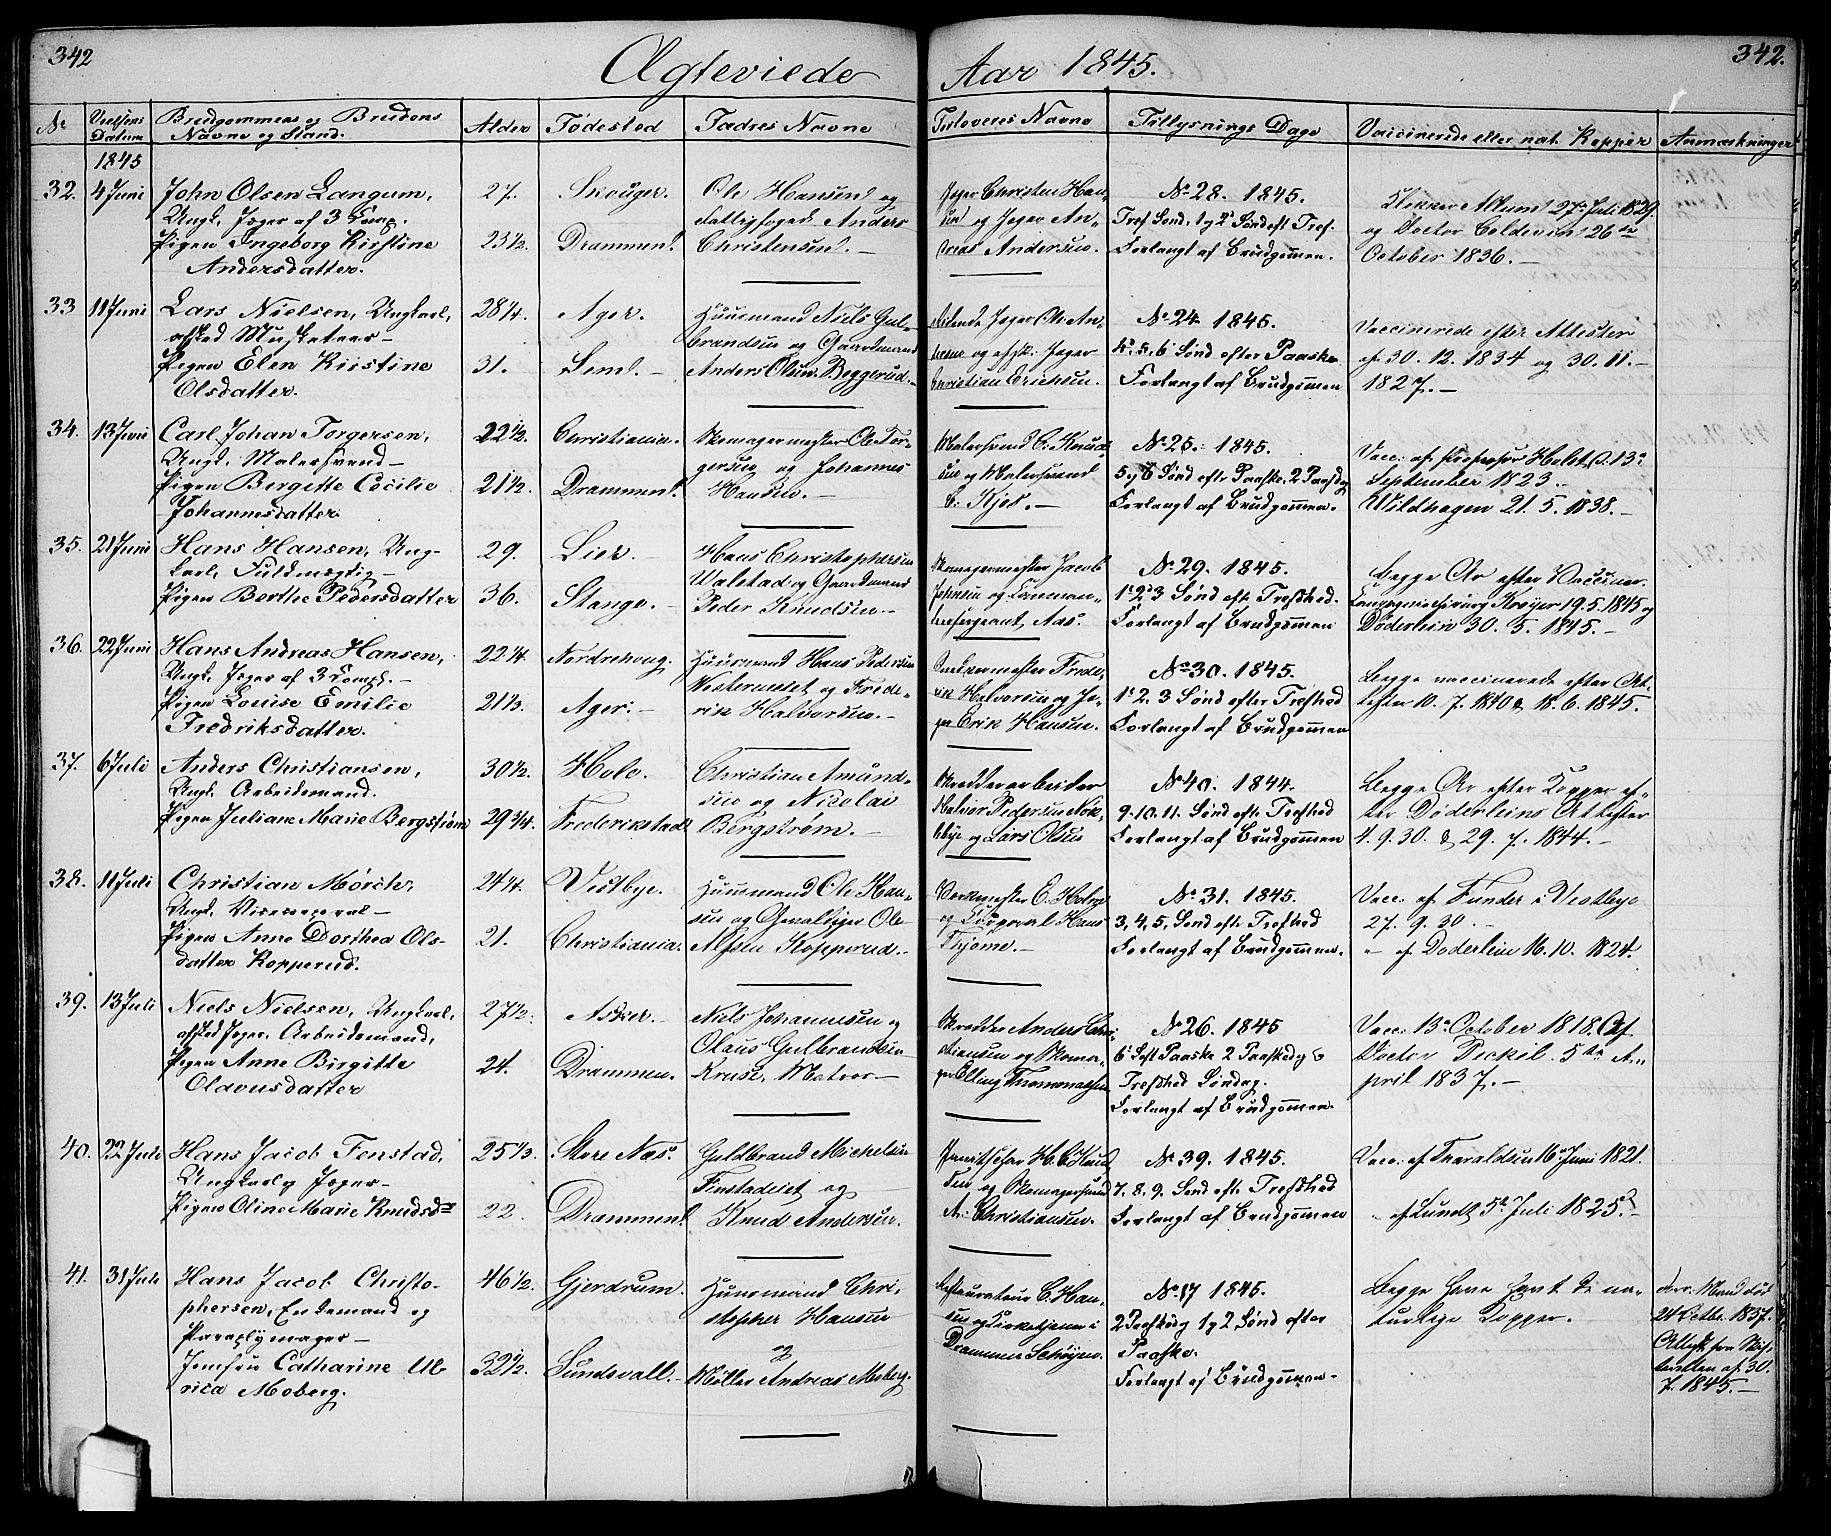 342
Ægteviede
Aar 1845.
342.
No
Vielsens Datum
Brudgommens og Brudens Navne og Stand.
Alder
Fødested
Fædres Navne
Forloveres Navne
Tillysnings Dage
Vaccinerede eller nat. Kopper
Anmærkninger
1845
32. 4 Juni
John Olsen Langum,
Ungk. Jæger af 3 Komp.
Pigen Ingeborg Kirstine
Andersdatter.
27.
23½.
Skouger.
Drammen.
Ole Hansen og
Fattigfoged Anders
Christensen.
Jæger Christen Han-
sen og Jæger An-
dreas Andersen.
No 28. 1845.
Tref Sønd. 1 og 2 Sønd eft Tref.
Forlangt af Brudgommen.
Klokker Aklund 27de Juli 1829.
og Doctor Coldevin 26de
October 1836.
33 11 Juni
Lars Nielsen, Ungkarl,
afsked Musketeer
Pigen Elen Kirstine
Olsdatter.
28¼.
31.
Ager.
Leml.
Huusmand Niels Gul-
brandsen og Gaardmand
Anders Olsen Beggerud.
Ridende Jæger Ole An-
dresen og afsk. Jæger
Christian Erichsen.
No 24 1845.
4. 5. 6 Sønd efter Paaske
Forlangt af Brudgommen
Vaccinerede efter Attester
af 30. 12. 1834 og 30. 11.
1827.
34. 13 Juni
Carl Johan Torgersen,
Ungk. Malersvend
Pigen Bergitte Cecilie
Johannesdatter
22½.
21½.
Christiania.
Drammen.
Skomagermester Ole Tor-
gersen og Johannes
Hansen.
Malersvend C. Knud-
sen og Malersvend
C. Kjos.
No 25. 1845.
5 og 6 Sønd efter Paaske. 2 Paaskedag
Forlangt af Brudgommen.
Vacc. af Professor Holst d. 13de
September 1823.
Wildhagen 21. 5. 1838.
35. 21 Juni
Hans Hansen, Ung-
karl, Fuldmægtig
Pigen Berthe Pedersdatter
29.
36.
Lier.
Stange.
Hans Christophersen
Walstad og Gaardmand
Peder Knudsen
Skomagermester Jacob
Johnsen og
sergeant Aas.
No 29. 1845.
1. 2. 3 Sønd eft. Trefhed.
Forlangt af Brudgommen
Begge Ar efter Vaccine.
Compagniechirurg Krøyer 19. 5. 1845 og
Døderlein 30. 5. 1845.
36. 22 Juni
Hans Andreas Hansen,
Ungk. Jæger af 3 Komp.
Pigen Louise Emilie
Fredriksdatter.
22¼.
21⅓.
Nordrehoug.
Ager.
Huusmand Hans Pedersen
Westernelet og Frede-
rik Halvorsen.
Snekkermester Frede-
rik Halvorsen og Jæ-
ger Erik Hansen.
No 30. 1845.
1. 2. 3 Sønd efter Trefhed
Forlangt af Brudgommen
Begge vaccinerede efter At-
tester 10. 7. 1840 & 18. 6. 1845.
37. 6 Juli
Anders Christiansen,
Ungk. Arbeidsmand.
Pigen Juliane Marie Bergstrøm
30½.
29¾.
Hole.
Frederikstad
Christian Amund-
sen og Nicolai
Bergstrøm.
Skrædderarbeider
Halvor Pedersen Nok-
kbye og Lars Olsen
No 40. 1844.
9. 10. 11. Sønd eft Trefhed
Forlangt af Brudgommen
Begge Ar efter Kopper ef-
ter Døderleins Attester
4. 9. 30. & 29. 7. 1844.
38. 11 Juli
Christian Mørch,
Ungk. Vicecorporal
Pigen Anne Dorthea Ols-
datter Kopperud.
24¼.
21.
Vestbye.
Christiania.
Huusmand Ole Han-
sen og Gevaldiger Ole
Alfsen Kopperud.
Værkmester E. Holm
og Corporal Hans
Thjome.
No 31. 1845.
3, 4, 5, Sønd efter Trefhed
Forlangt af Brudgommen.
Vacc. af Funder i Vestbye
27. 9. 30.
" af Døderlein 16. 10. 1824.
39. 13 Juli
Niels Nielsen, Ungkarl,
afsked Jæger. Arbeidsmand,
Pigen Anne Birgitte
Olavusdatter
27½.
24.
Asker.
Drammen.
Niels Johannesen og
Olaus Gulbrandsen
Kruse, Matros
Skrædder Anders Chri-
stiansen og Skoma-
ger Elling Thommassen
No 26. 1845
6 Søft Paaske 2 Paaskedag
Trefhed Søndag.
Forlangt af Brudgommen.
Vacc. 13de October 1818. Af
Doctor Peckil 5te A-
pril 1837.
40. 22 Juli
Hans Jacob Fenstad,
Ungkarl og Jæger
Pigen Oline Marie Knudsdr
25⅓.
22.
Store Næs.
Drammen.
Guldbrand Michelsen
Fenstadeiet og
Knud Andersen.
og Skomagersvend
A. Christiansen.
No 39. 1845.
7. 8. 9. Sønd eft. Trefhed
Forlangt af Brudgommen
Vacc. af Tharaldsen 16de Juni 1821.
" af Lundt 5te Juli 1825.
41. 31 Juli
Hans Jacob Christo-
phersen, Enkemand og
Paraplymager
Jomfru Catharine Ul-
rica Moberg.
46½.
32½.
Gjerdrum.
Sundsvall.
Huusmand Chri-
stopher Hansen
og
Møller Andreas Moberg.
Restaurateur C. Han-
sen og Kirketjener i
Drammen Schøyen.
No 17 1845.
2 Paaskedag 1 og 2 Sønd efter
Paaske.
Forlangt af Brudgommen
Begge have havt de na-
turlige Kopper.
24 Octbr. 1837.
Attest fra Skif-
teretten af 30.
7. 1845.